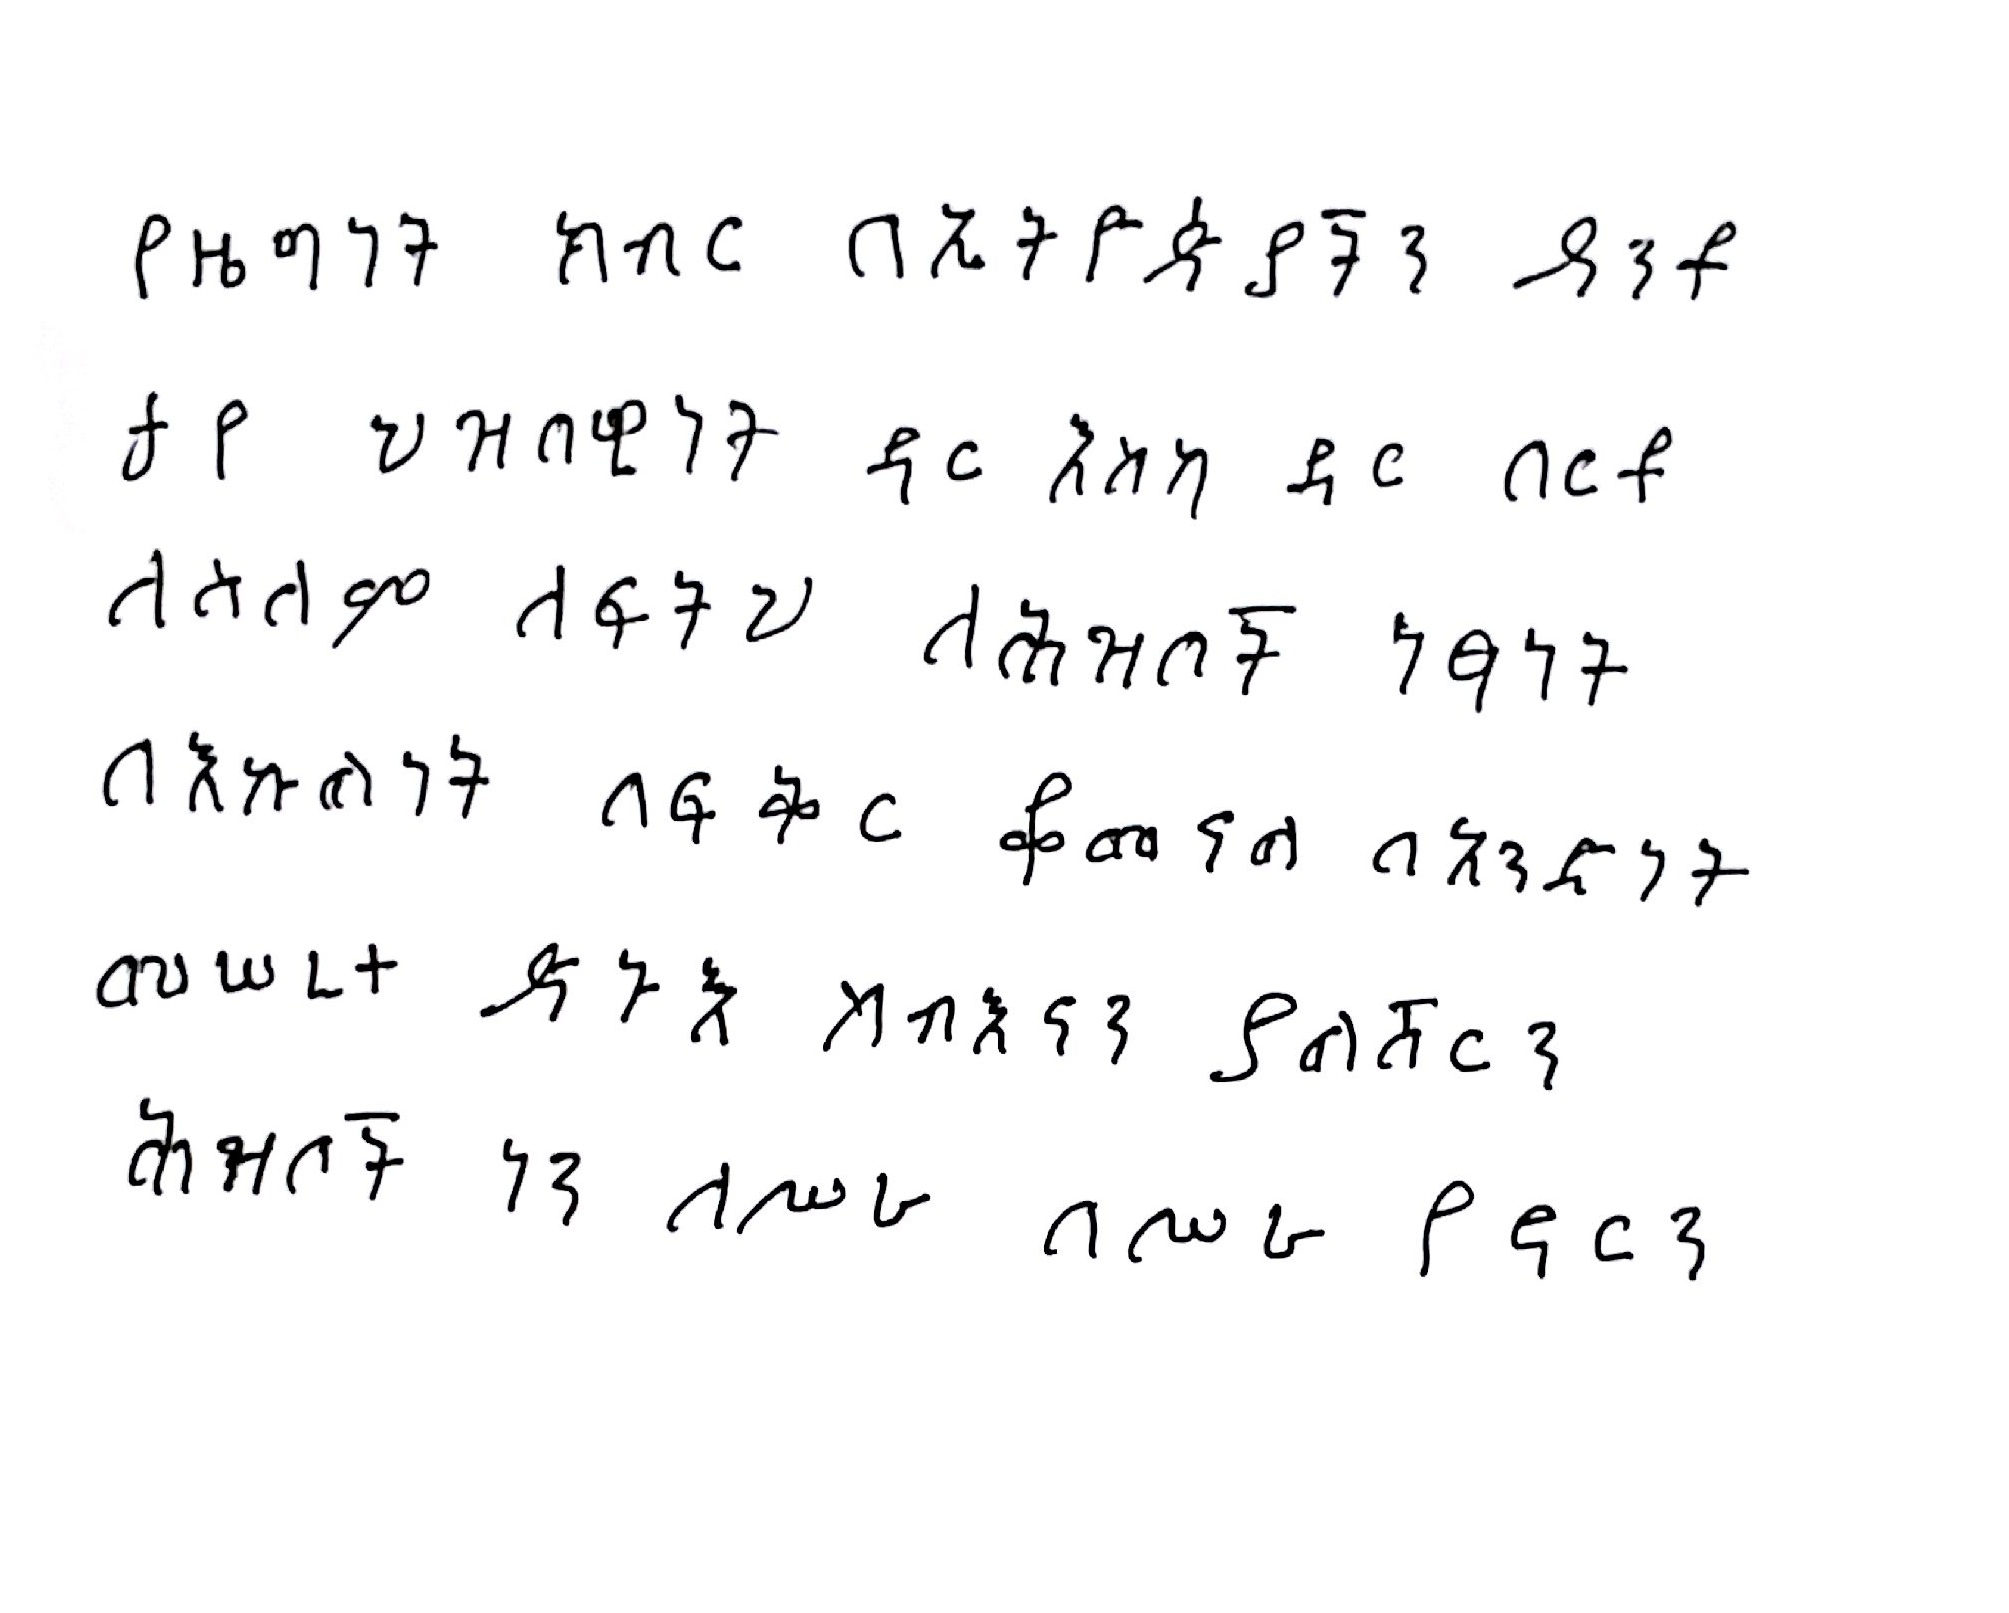 የዜግነት ክብር በኢትዮጵያችን ጸንቶ
ታየ ህዝባዊነት ዳር እስከ ዳር በርቶ
ለሰላም ለፍትህ ለሕዝቦች ነፃነት
በእኩልነት በፍቅር ቆመናል በአንድነት
መሠረተ ጽኑ እ ሰብእናን ያልሻርን
ሕዝቦች ነን ለሥራ በሥራ የኖርን